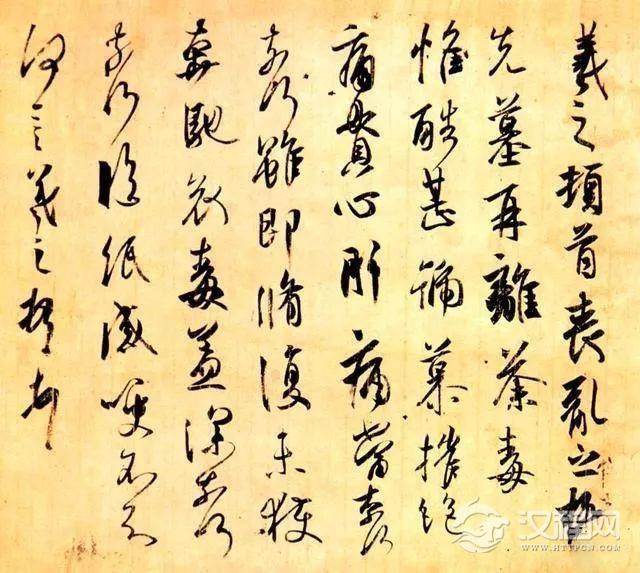 羲之頓首喪亂之極
先墓再離荼毒追
惟酷甚號慕摧絶
痛貫心肝痛當奈何
奈何雖即脩復未獲
奔馳哀毒益深奈何
奈何臨紙感哽不知
何言羲之頓首頓首
汉程网
WWW.HTTPCN.COM